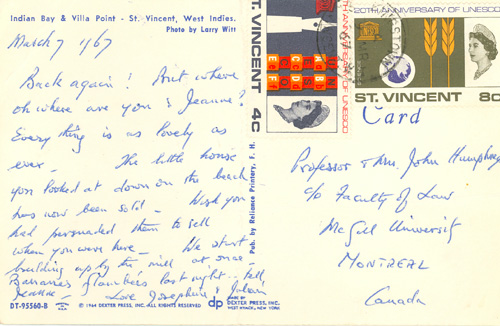 Indian Bay & Villa Point - St. Vincent, West Indies.
Photo by Larry Witt
March 7 1967
Back again! But where
oh where are you & Jeanne?
Everything is as lovely as
ever - The little house
you looked at down on the beach
has now been sold - Wish you
had persuaded them to sell
when you were here - We start
building up by the mill at once.
Bananas flambées last night - tell
Jeanne - Love Josephine & Julian
DT-95560-B
© 1964 DEXTER PRESS, INC. ALL RIGHTS RESERVED
Pub. by Reliance Printery, F. H.
dp
MADE BY
DEXTER PRESS, INC.
WEST NYACK, NEW YORK
ST. VINCENT 4C
Aa Bb
Cc Dd
Ee Ff
20TH ANNIVERSARY OF UNESCO
ST. VINCENT 8C
Card
Professor & Mrs. John Humphrey
c/o Faculty of Law
McGill University
MONTREAL
Canada